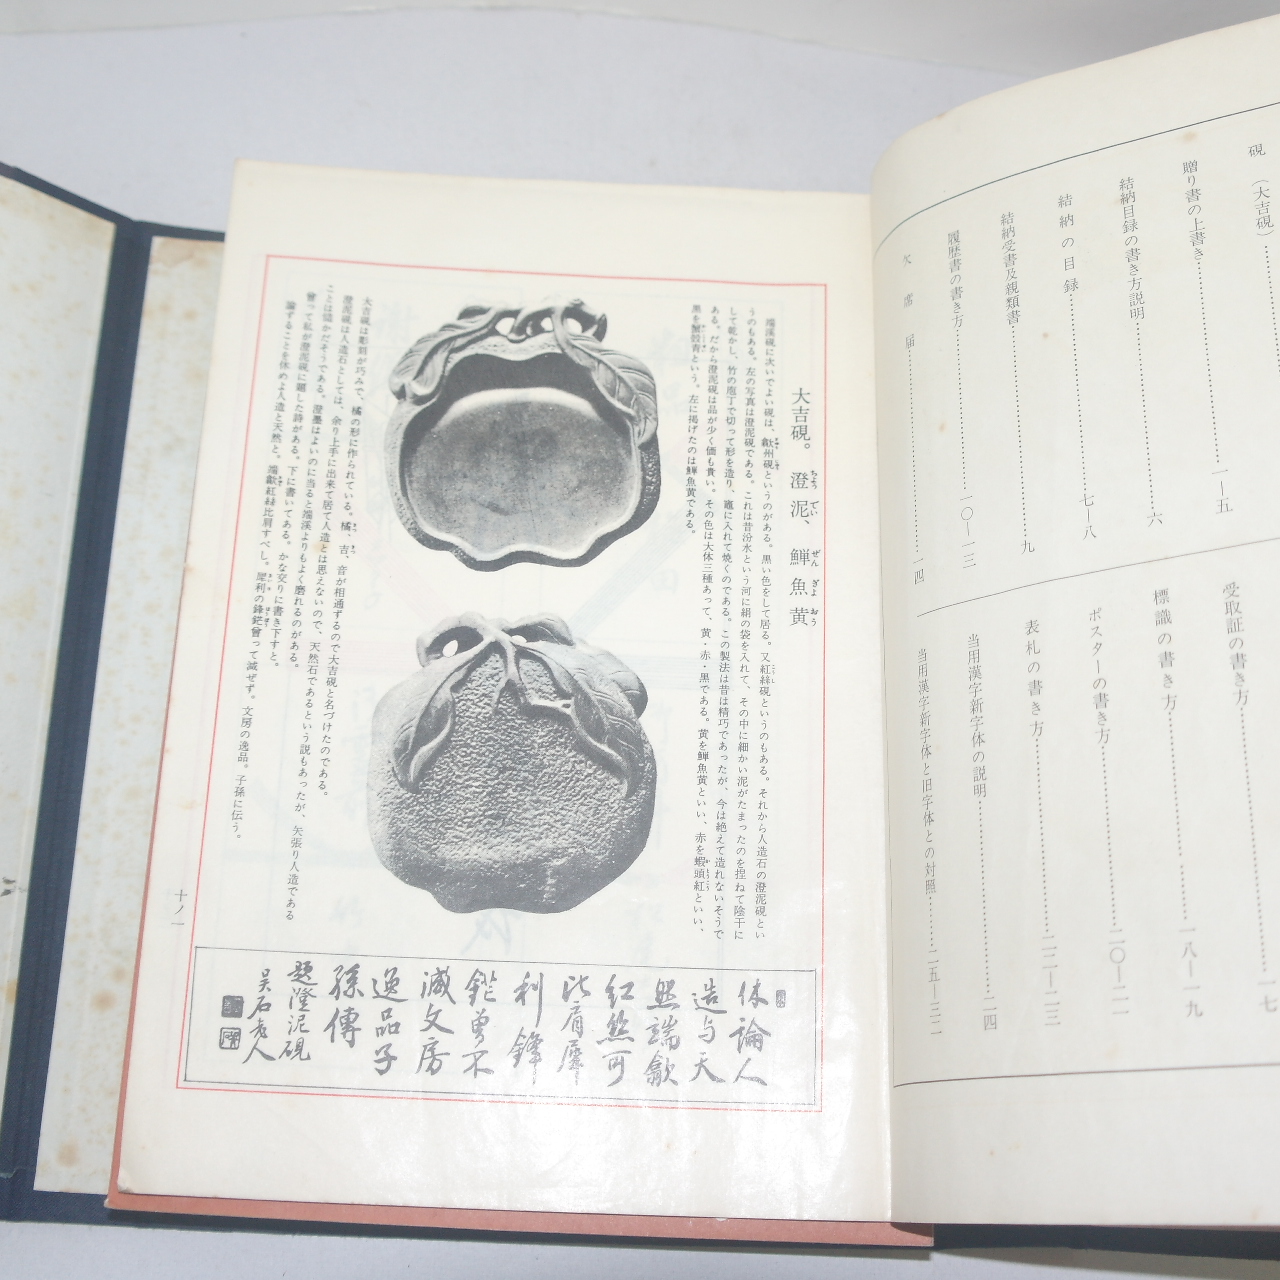 硯(大吉硯)
贈り書の上書き 一―五
結納目録の書き方説明 六
結納の目録 七―八
結納受書及親類書 九
履歴書の書き方 一〇―一三
欠席届 一四
受取証の書き方 一七
標識の書き方 一八―一九
ポスターの書き方 二〇―二一
表札の書き方 二二―二三
当用漢字新字体の説明 二四
当用漢字新字体と旧字体との対照 二五―三二
大吉硯。 澄泥、鱓魚黄
ちょうでい ぜんぎょおう
端溪硯に次いでよい硯は、歙州硯というのがある。黒い色をして居る。又紅絲硯というのもある。それから人造石の澄泥硯とい
うのもある。左の写真は澄泥硯である。これは昔汾水という河に絹の袋を入れて、その中に細かい泥がたまったのを捏ねて陰干に
して乾かし、竹の庖丁で切って形を造り、竈に入れて焼くのである。この製法は昔は精巧であったが、今は絶えて造れないそうで
ある。だから澄泥硯は品が少く価も貴い。その色は大体三種あって、黄・赤・黒である。黄を鱓魚黄といい、赤を蝦頭紅といい、
黒を蟹殻青という。左に掲げたのは鱓魚黄である。
大吉硯は彫刻が巧みで、橘の形に作られている。橘、吉、音が相通ずるので大吉硯と名づけたのである。
澄泥硯は人造石としては、余り上手に出来て居て人造とは思えないので、天然石であるという説もあったが、矢張り人造である
ことは確かだそうである。澄墨はよいのに当ると端溪よりもよく磨れるのがある。
曾って私が澄泥硯に題した詩がある。下に書いてある。かな交りに書き下すと。
論ずることを休めよ人造と天然と。端歙紅絲比肩すべし。犀利の鋒鋩曾って減ぜず。文房の逸品。子孫に伝う。
十ノ一
休論人
造与天
然端歙
紅絲可
比肩犀
利鋒
鋩曾不
減文房
逸品子
孫傳
題澄泥硯
吴石老人